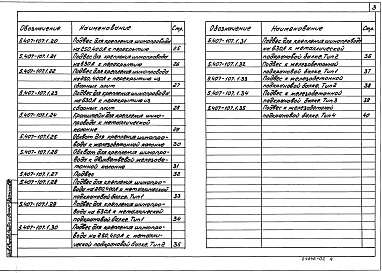 3
Обозначение Наименование Стр.
5.407-107.1.20 Подвес для крепления шинопровода
на 250,400А к перекрытию 25
5.407-107.1.21 Подвес для крепления шинопровода
на 630А к перекрытию 26
5.407-107.1.22 Подвес для крепления шинопровода
на 250,400А к перекрытию из
сборных плит 27
5.407-107.1.23 Подвес для крепления шинопровода
на 630А к перекрытию из
сборных плит 28
5.407-107.1.24 Кронштейн для крепления шино-
провода к металлической
колонне 29
5.407-107.1.25 Обхват для крепления шинопро-
вода к железобетонной колонне 30
5.407-107.1.26 Обхват для крепления шинопро-
вода к двухветвевой железобе-
тонной колонне 31
5.407-107.1.27 Подвес 32
5.407-107.1.28 Подвес для крепления шинопро-
вода на 250,400А к металлической
подкрановой балке. Тип 1 33
5.407-107.1.29 Подвес для крепления шинопро-
вода на 630А к металлической
подкрановой балке. Тип 1 34
5.407-107.1.30 Подвес для крепления шинопро-
вода на 250,400А к металли-
ческой подкрановой балке. Тип 2 35
Обозначение Наименование Стр.
5.407-107.1.31 Подвес для крепления шинопровода
на 630А к металлической
подкрановой балке. Тип 2 36
5.407-107.1.32 Подвес к железобетонной
подкрановой балке. Тип 1 37
5.407-107.1.33 Подвес к железобетонной
подкрановой балке. Тип 2 38
5.407-107.1.34 Подвес к железобетонной
подкрановой балке. Тип 3 39
5.407-107.1.35 Подвес к железобетонной
подкрановой балке. Тип 4 40